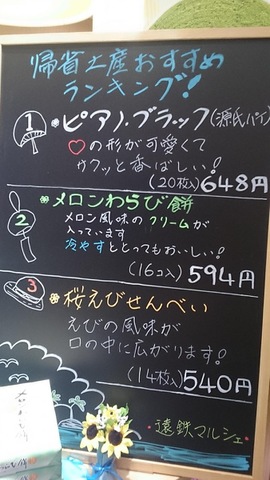 帰省土産おすすめ
ランキング!
1 ピアノ.ブラック(源氏パイ)
♡の形が可愛くて
サクッと香ばしい!
(20枚入)648円
2 メロンわらび餅
メロン風味のクリームが
入っています
冷やすととってもおいしい!
(16コ入)594円
3 桜えびせんべい
えびの風味が
口の中に広がります!
(14枚入)540円
遠鉄マルシェ